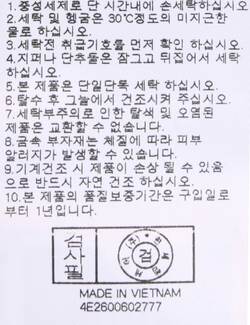 1.중성세제로 단 시간내에 손세탁하십시오
2.세탁 및 헹굼은 30℃정도의 미지근한
물로 하십시오.
3.세탁전 취급기호를 먼저 확인 하십시오.
4.지퍼나 단추물은 잠그고 뒤집어서 세탁
하십시오.
5.본 제품은 단일단독 세탁 하십시오.
6.탈수 후 그늘에서 건조시켜 주십시오.
7.세탁부주의로 인한 탈색 및 오염된
제품은 교환할 수 없습니다.
8.금속 부자재는 체질에 따라 피부
알러지가 발생할 수 있습니다.
9.기계건조 시 제품이 손상 될 수 있음
으로 반드시 자연 건조 하십시오.
10.본 제품의 품질보증기간은 구입일로
부터 1년입니다.
검사필
검
MADE IN VIETNAM
4E2600602777